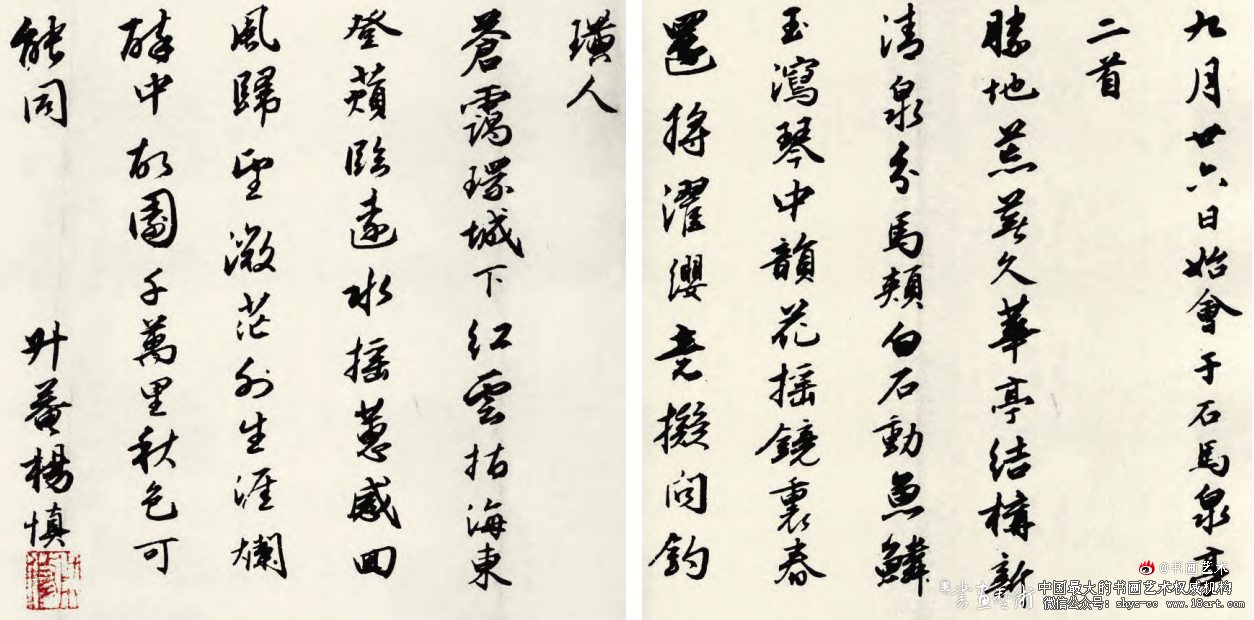 九月廿六日始會于石馬泉亭
二首
勝地荒蕪久華亭結構新
清泉分馬頰白石動魚鱗
玉瀉琴中韻花搖鏡裏春
還將濯纓意擬問釣
璜人
蒼靄環城下紅雲指海東
登蘋臨遠水搖蕙感回
風歸望微茫外生涯爛
醉中故園千萬里秋色可
能同 升菴楊慎
@书画艺术
書畫藝術
中国最大的书画艺术权威机构
微信公众号: shys-cc www.18art.com